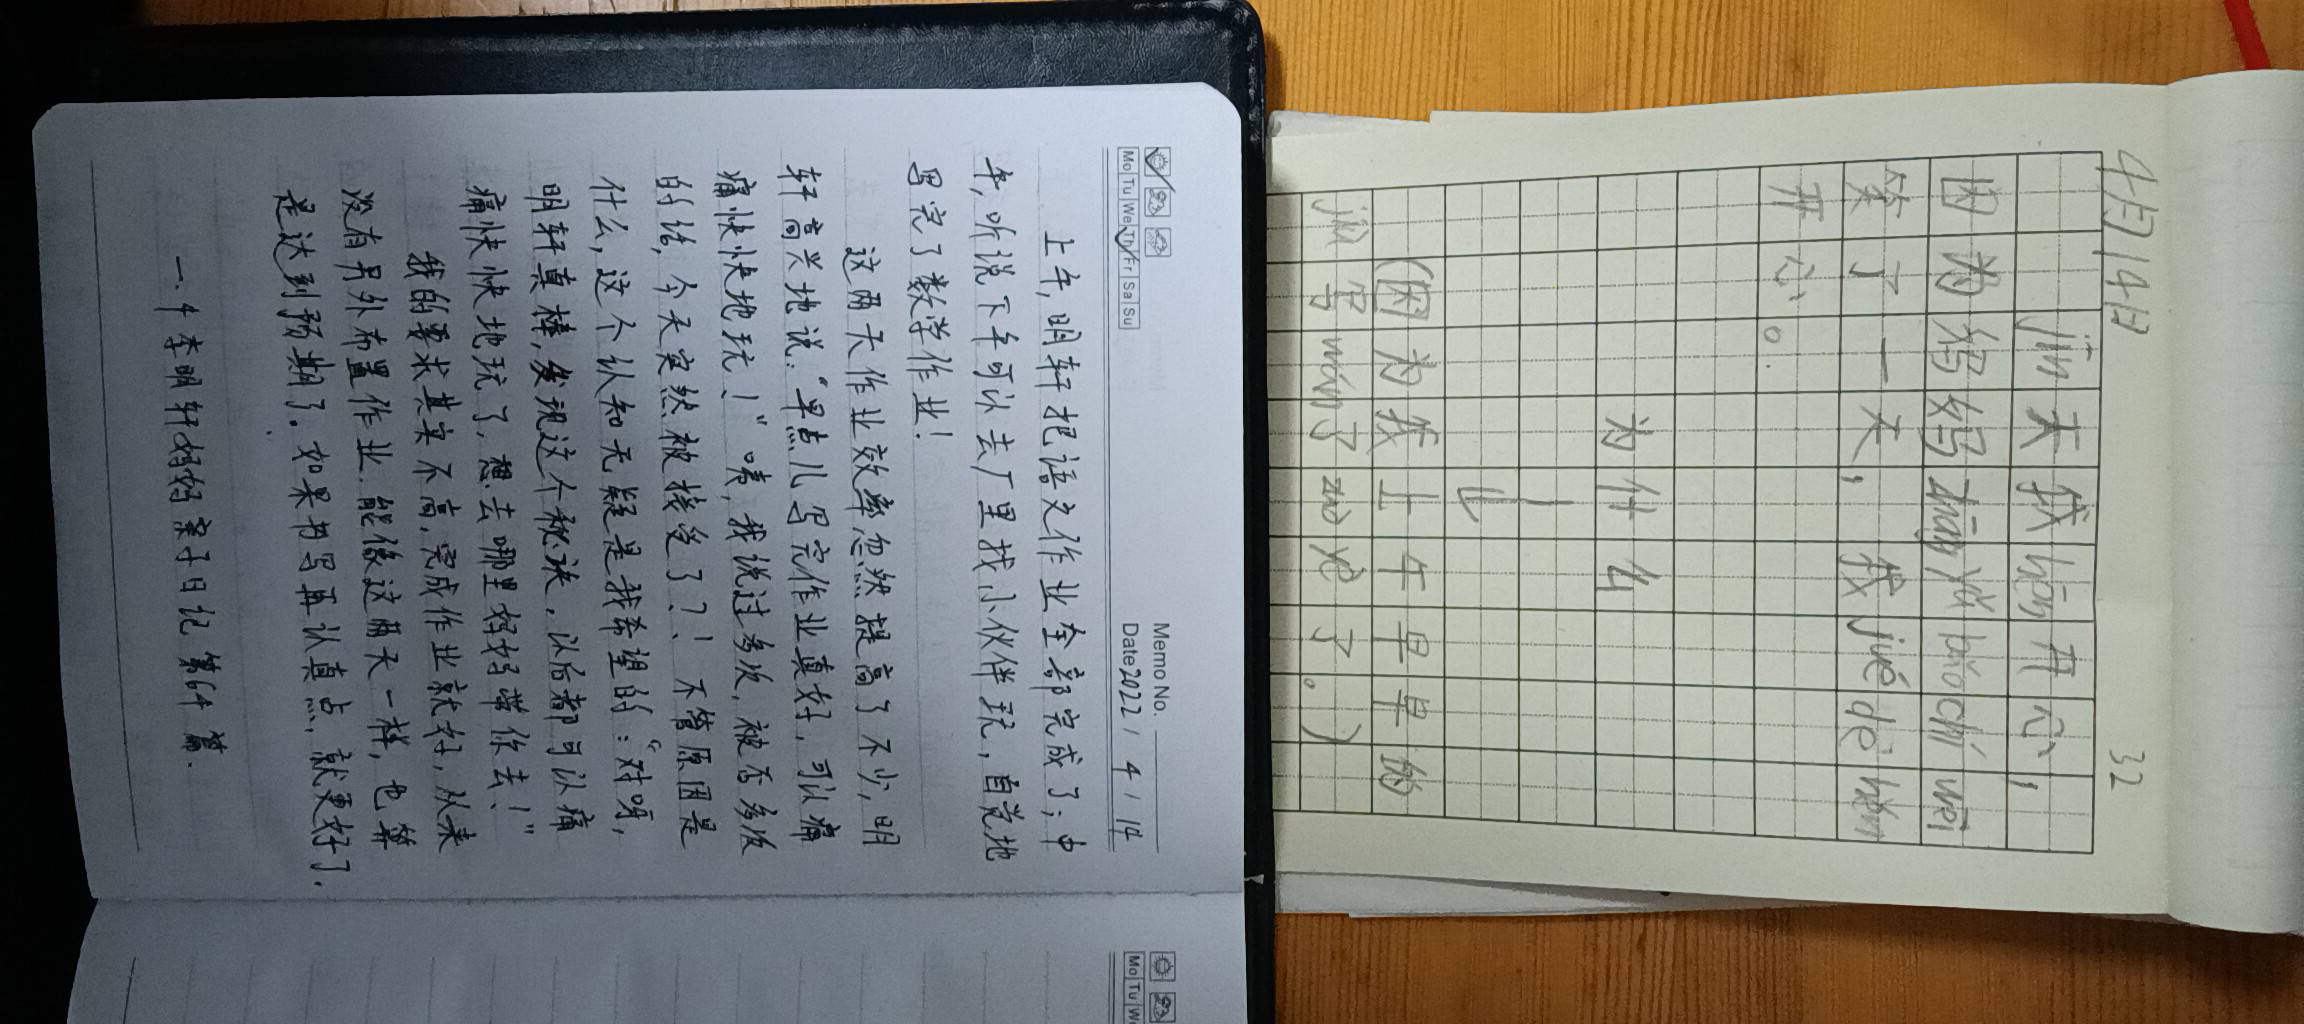 4月14日
32
jīn天我hěn开心，
因为妈妈zhāng着bǎochí wēi
笑了一天，我jué de hěn
开心。
为什么
(因为我上午早早的
作业
Memo No.
Mo Tu We Th Fr Sa Su
Date 2022 / 4 / 14
上午，明轩把语文作业全部完成了；中
午，听说下午可以去厂里找小伙伴玩，自觉地
写完了数学作业！
这两天作业效率忽然提高了不少，明
轩高兴地说：“早点儿写完作业真好，可以痛
痛快快地玩！”啧，我说过多次，被否多次
的话，今天突然被接受了？！不管原因是
什么，这个认知无疑是我希望的：“对呀，
明轩真棒，发现这个秘诀，以后都可以痛
痛快快地玩了，想去哪里妈妈带你去！”
我的要求其实不高，完成作业就好，从来
没有另外布置作业，能像这两天一样，也算
是达到预期了。如果书写再认真点，就更好了.
一.4 李明轩妈妈亲子日记 第64篇.
Mo Tu We